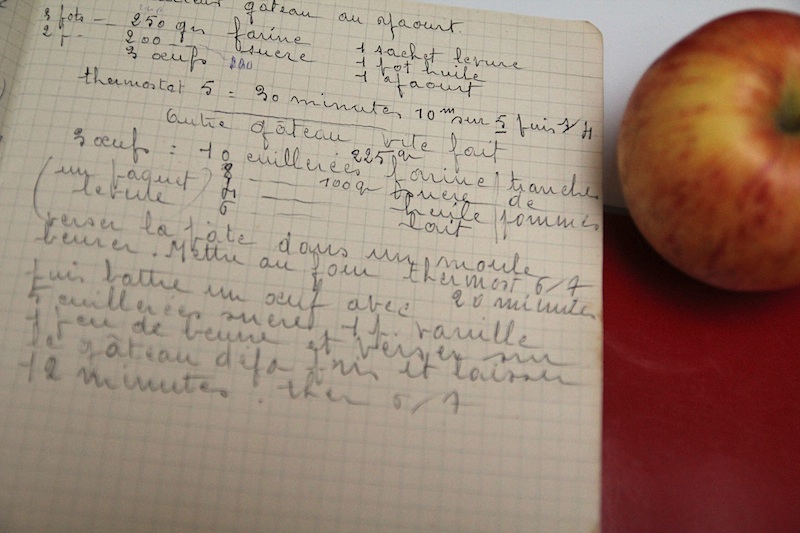 gâteau au yaourt
3 pots — 250 grs farine
2 p — 200 — sucre 1 sachet levure
3 œufs 1 pot huile
1 yaourt
thermostat 5 = 30 minutes 10 m sur 5 puis 4
Autre gâteau vite fait
3 œufs = 10 cuillerées 225 gr farine tranches
(un paquet levure) 8 — 100 gr sucre de
4 — huile pommes
6 — lait
verser la pâte dans un moule
beurer. Mettre au four thermost 6/7
20 minutes
puis battre un œuf avec
5 cuillerées sucre 1 p. vanille
1 peu de beurre et verser sur
le gâteau déja pris et laisser
12 minutes. ther 6/7